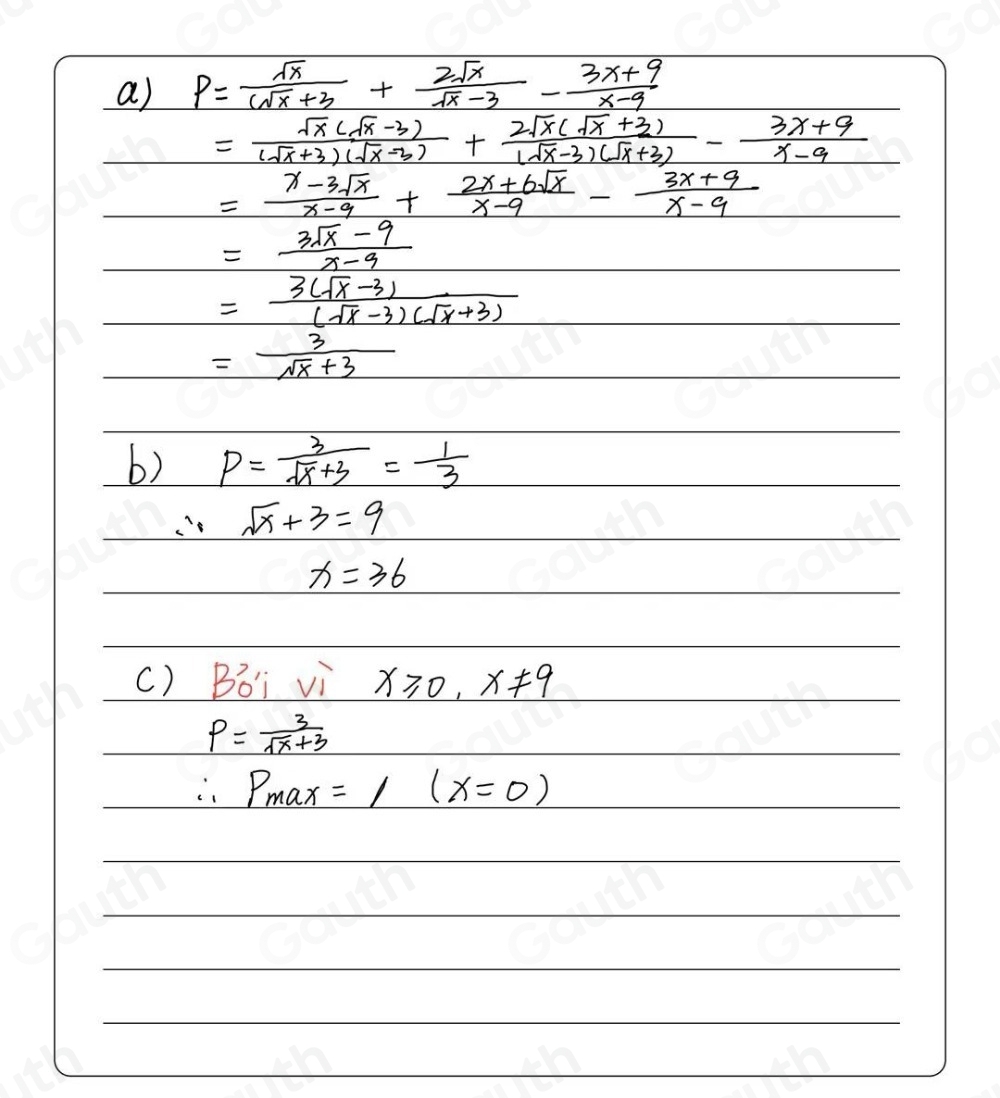 a) P = √x/(√x+3 + 2√x/√x-3 - 3x+9/x-9
= √x(√x-3)/(√x+3)(√x-3) + 2√x(√x+3)/(√x-3)(√x+3) - 3x+9/x-9
= x-3√x/x-9 + 2x+6√x/x-9 - 3x+9/x-9
= 3√x-9/x-9
= 3(√x-3)/(√x-3)(√x+3)
= 3/√x+3
b) P = 3/√x+3 = 1/3
∴ √x+3=9
x=36
c) Bởi vì x≥0, x≠9
P = 3/√x+3
∴ Pmax = 1 (x=0)